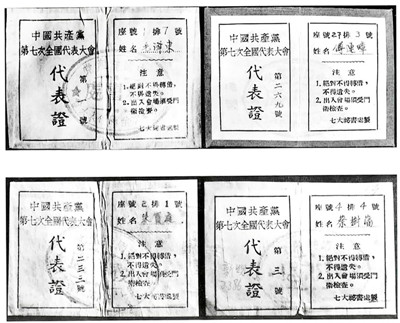 中國共產黨
第七次全國代表大會
代表證
第一號
座號1排7號
姓名毛澤東
注意
1.絕對不得轉借,
不得遺失。
2.出入會場須受門
衛檢查。
七大祕書處製
中國共產黨
第七次全國代表大會
代表證
第二六九號
座號27排3號
姓名傅連暲
注意
1.絕對不得轉借,
不得遺失。
2.出入會場須受門
衛檢查。
七大祕書處製
中國共產黨
第七次全國代表大會
代表證
第二三三號
座號2排1號
姓名
注意
1.絕對不得轉借,
不得遺失。
2.出入會場須受門
衛檢查。
七大祕書處製
中國共產黨
第七次全國代表大會
代表證
第三號
座號4排4號
姓名蔡樹藩
注意
1.絕對不得轉借,
不得遺失。
2.出入會場須受門
衛檢查。
七大祕書處製